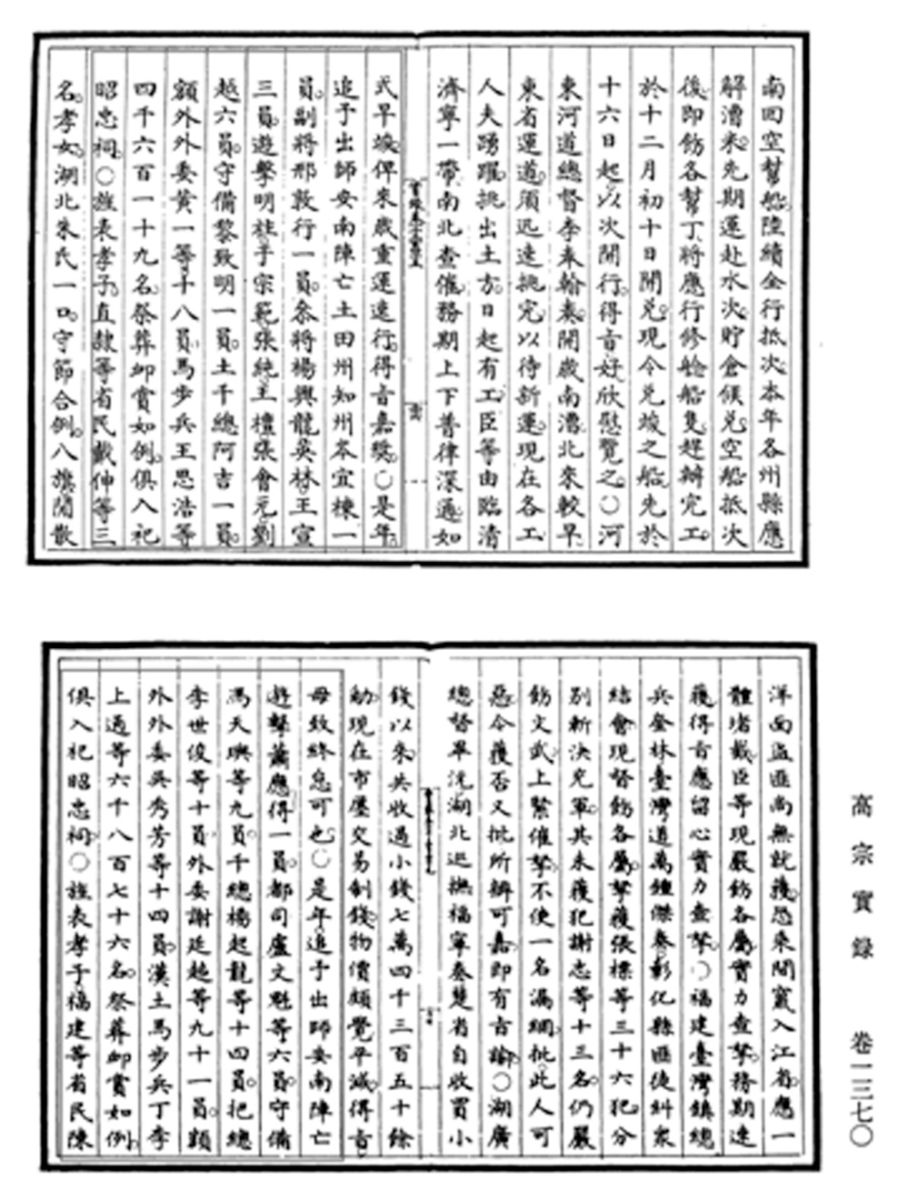 南回空幫船。陸續全行抵次。本年各州縣應
解漕米。先期運赴水次。貯倉候兌。空船抵次
後。即飭各幫丁將應行修艌船隻。趕辦完工。
於十二月初十日開兌。現令兌竣之船。先於
十六日起。以次開行。得旨。好欣慰覽之。○河
東河道總督李奉翰奏。開歲南漕北來較早。
東省運道。須迅速挑完。以待新運。現在各工
人夫踴躍。挑出土方。日起有工。臣等由臨清
濟寧一帶。南北查催。務期上下普律深通。如
式早竣。俾來歲重運遄行。得旨。嘉獎。○是年。
追予出師安南陣亡土田州知州岑宜棟一
員。副將邢敦行一員。參將楊興龍。英林。王宣
三員。遊擊明柱。于宗範。張純。王檀。張會元。劉
越六員。守備黎致明一員。土千總阿吉一員。
額外外委黃一等十八員。馬步兵王思浩等
四千六百一十九名。祭葬卹賞如例。俱入祀
昭忠祠。○旌表孝子。直隸等省民戴伸等三
名。孝女。湖北朱氏一口。守節合例。八旗閒散
洋面盜匪尚無就獲。恐來閒竄入江省。應一
體堵截。臣等現嚴飭各屬。實力查拏。務期速
獲。得旨。應留心實力查拏。○福建臺灣鎮總
兵奎林。臺灣道萬鍾傑奏。彰化縣匪徒糾眾
結會。現督飭各屬。拏獲張標等三十六犯。分
別斬決充軍。其未獲犯謝志等十三名。仍嚴
飭文武。上緊催拏。不使一名漏網。批。此人可
惡。今獲否。又批。所辦可嘉。即有旨諭。○湖廣
總督畢沅。湖北巡撫福寧奏。楚省自收買小
錢以來。共收過小錢七萬四千三百五十餘
觔。現在市廛交易制錢。物價頗覺平減。得旨。
毋致終怠可也。○是年。追予出師安南陣亡
遊擊蕭應得一員。都司盧文魁等六員。守備
馮天興等九員。千總楊起龍等十四員。把總
李世俊等十員。外委謝廷超等九十一員。額
外外委吳秀芳等十四員。漢土馬步兵丁李
上適等六千八百七十六名。祭葬卹賞如例。
俱入祀昭忠祠。○旌表孝子。福建等省民陳
高宗實錄 卷一三七〇